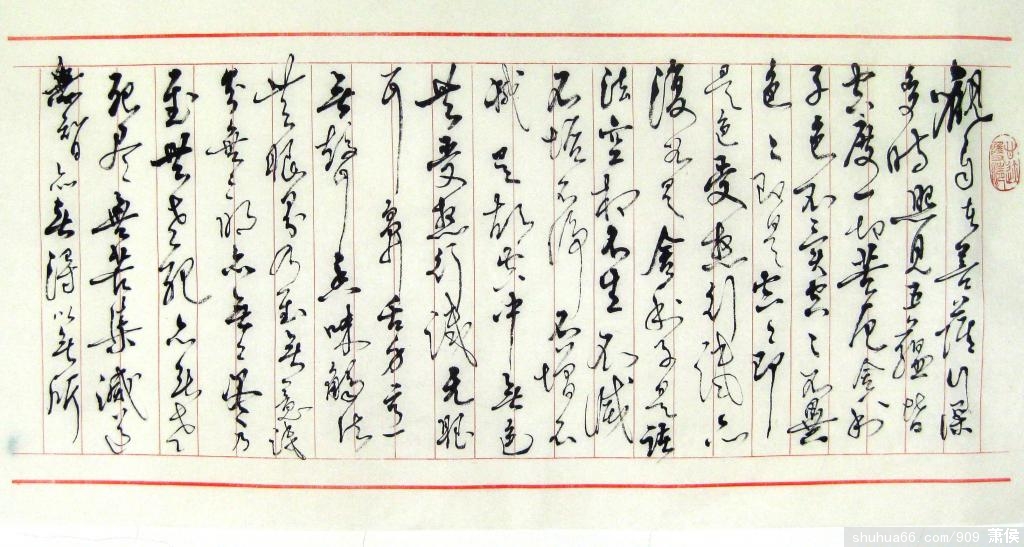 觀自在菩薩行深
多時照見五蘊皆
空度一切苦厄舍利
子色不異空々不異
色々即是空々即
是色受想行識亦
復如是舍利子是諸
法空相不生不滅
不垢不淨不增不
減是故空中無色
無受想行識无眼
耳鼻舌身意
無聲香味觸法
無眼界乃至無意識
界無々明亦無々盡乃
至無老死亦無老
死盡無苦集滅道
無智亦無得以無所
shuhua66.com/909 萧侯